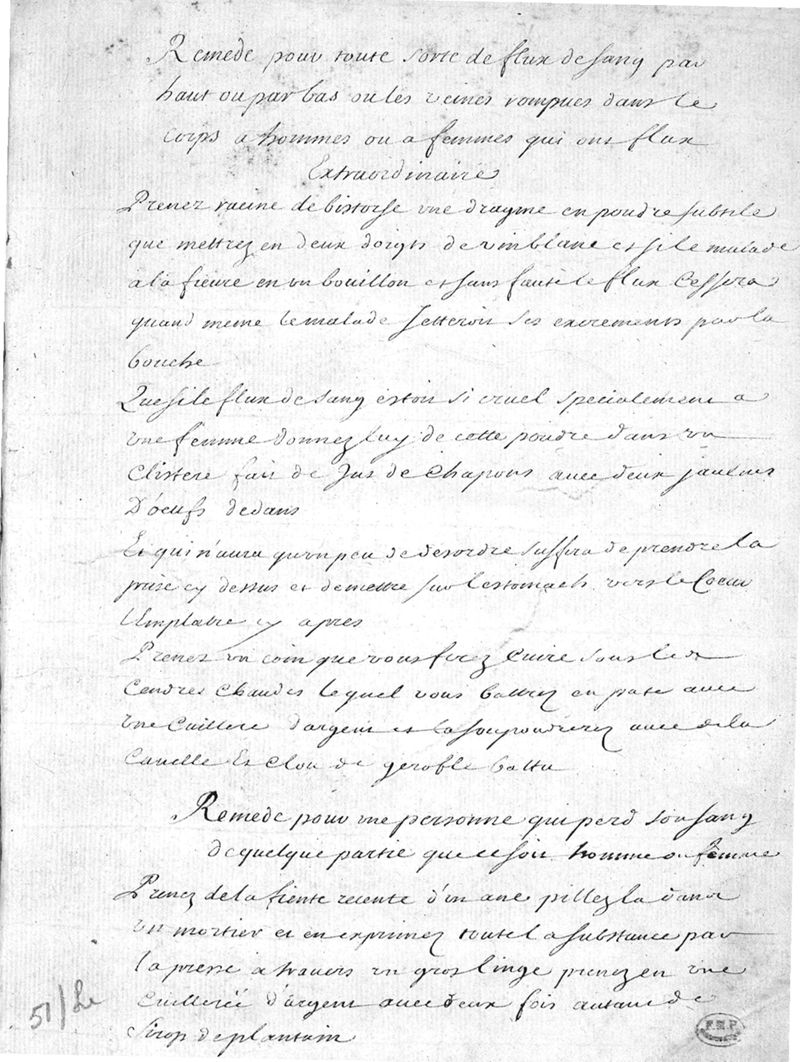 Remede pour toute sorte de flux de sang par
haut ou par bas ou les veines rompues dans le
corps a hommes ou a femmes qui ont flux
Extraordinaire
Prenez racine de bistorse une dragme en poudre subtile
que mettrez en deux doigts de vin blanc et si le malade
a la fieure en un bouillon et sans faute le flux Cessera
quand meme le malade Jetteroit ses excrements par la
bouche
Que si le flux de sang estoit si cruel specialement a
une femme donnez luy de cette poudre dans un
Clistere fait de Jus de Chapons avec deux jaulnes
D'oeufs dedans
Et qui n'aura qu'un peu de desordre suffira de prendre la
prise cy dessus et de mettre sur l'estomach vers le Coeur
l'Emplatre cy apres
Prenez un coin que vous ferez Cuire sous les
Cendres Chaudes lequel vous battrez en pate avec
une Cuillere d'argent et la soupoudrerez avec de la
Canelle Et Clou de gerofle battu
Remede pour une personne qui perd son sang
de quelque partie que ce soit homme ou femme
Prenez de la fiente recente d'un ane pillez la dans
un mortier et en exprimez toute la substance par
la presse a travers un gros linge prenez en une
Cuilleréé d'argent avec deux fois autant de
Sirop de plantain
51/